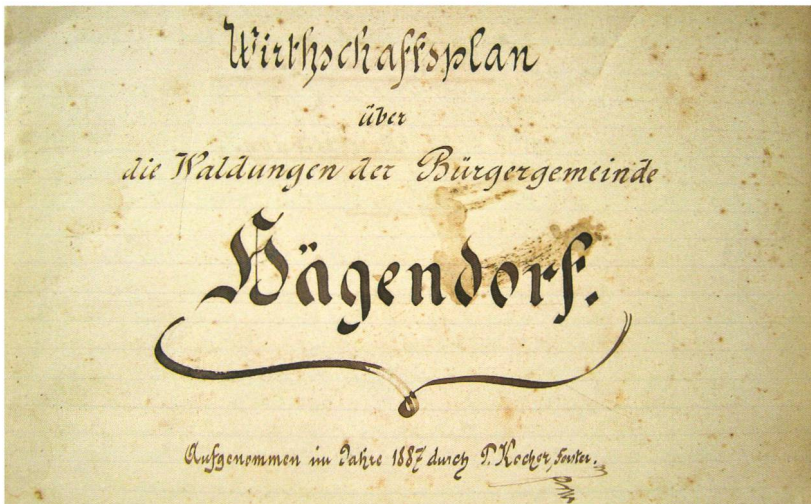 Wirthschaftsplan
über
die Waldungen der Bürgergemeinde
Hägendorf.
Aufgenommen im Jahre 1887 durch Kocher, Förster.